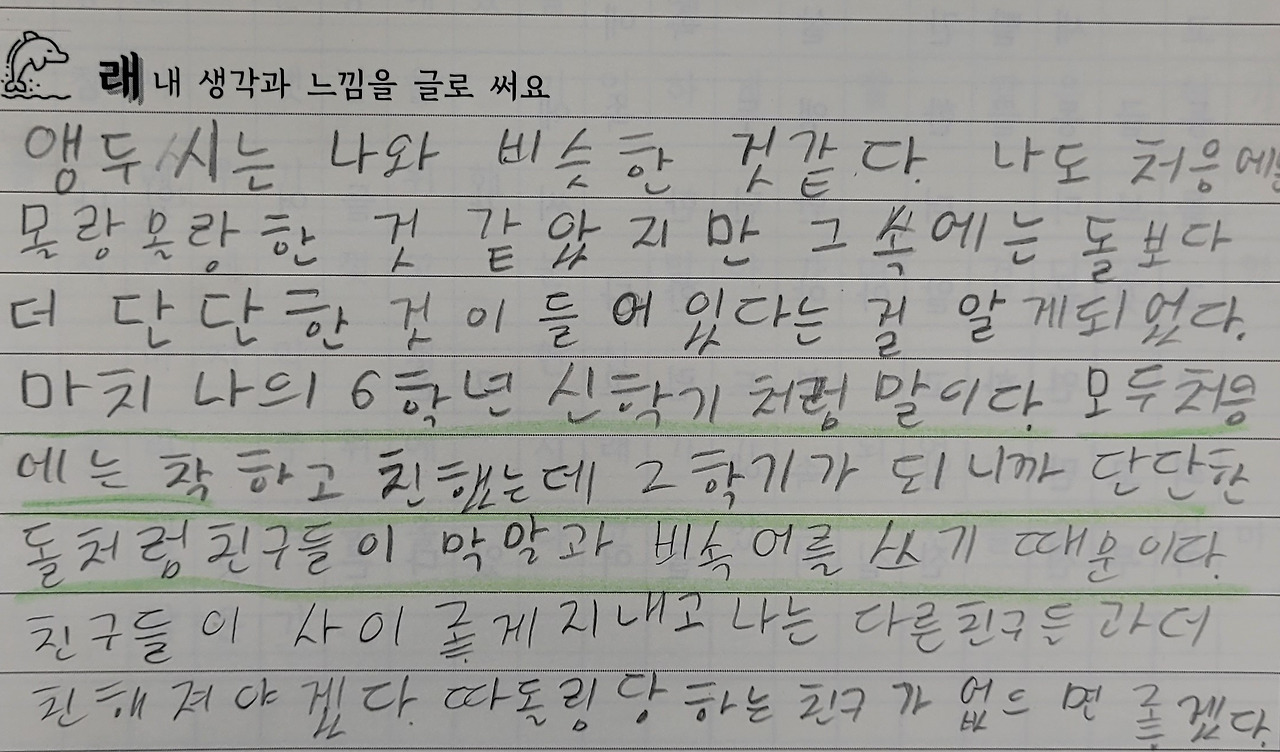 래 내 생각과 느낌을 글로 써요
앵두 씨는 나와 비슷한 것같다. 나도 처음에는
몰랑몰랑한 것 같았지만 그 속에는 돌보다
더 단단한 것이 들어있다는 걸 알게되었다.
마치 나의 6학년 신학기 처럼 말이다. 모두처음
에는 착하고 친했는데 2학기가 되니까 단단한
돌처럼 친구들이 막말과 비속어를 쓰기 때문이다.
친구들이 사이 좋게 지내고 나는 다른친구들과 더
친해져야 겠다. 따돌림 당하는 친구가 없으면 좋겠다.